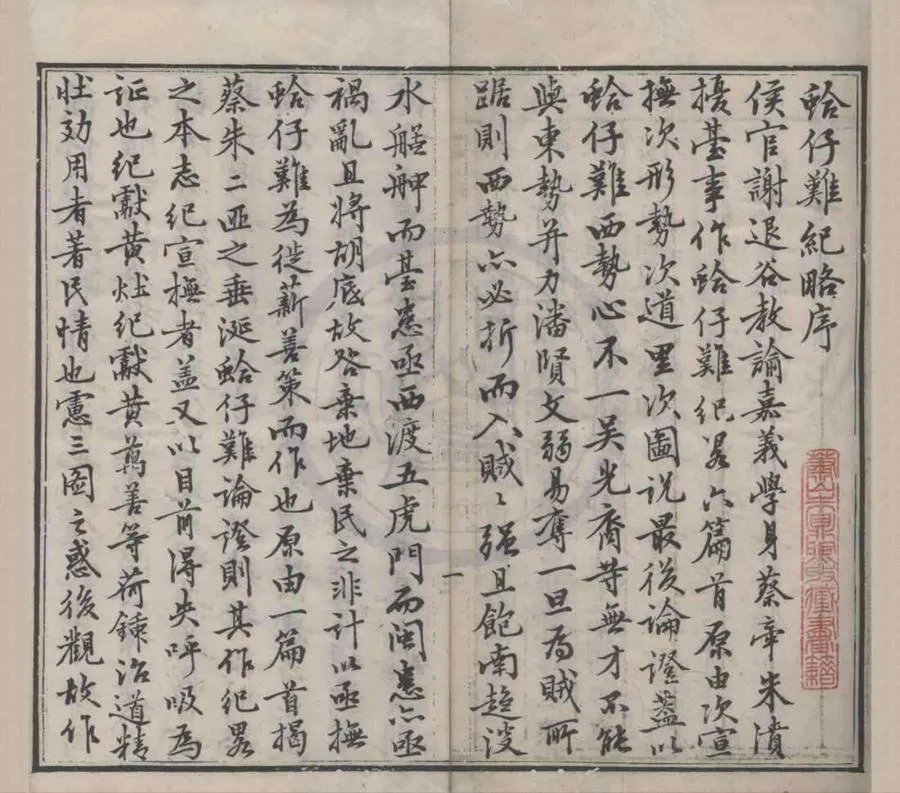 蛤仔難紀略序
侯官謝退谷教諭嘉義學身蔡牽朱濆
擾臺事作蛤仔難紀畧六篇首原由次宣
撫次形勢次道里次圖說最後論證蓋以
蛤仔難西勢心不一吴光裔等無才不能
與東勢并力潘賢文弱易奪一旦為賊所
踞則西勢亦必折而入賊〻强且飽南趨淡
水艋舺而臺患亟西渡五虎門而閩患亦亟
禍亂且將胡底故咎棄地棄民之非計以亟撫
蛤仔難為徙薪善策而作也原由一篇首揭
蔡朱二匪之垂涎蛤仔難論證則其作紀畧
之本志紀宣撫者盖又以目前得失呼吸為
証也紀獻黄灶紀獻黄萬善等荷鍤治道精
壮効用者著民情也慮三圖之惑後觀故作
一